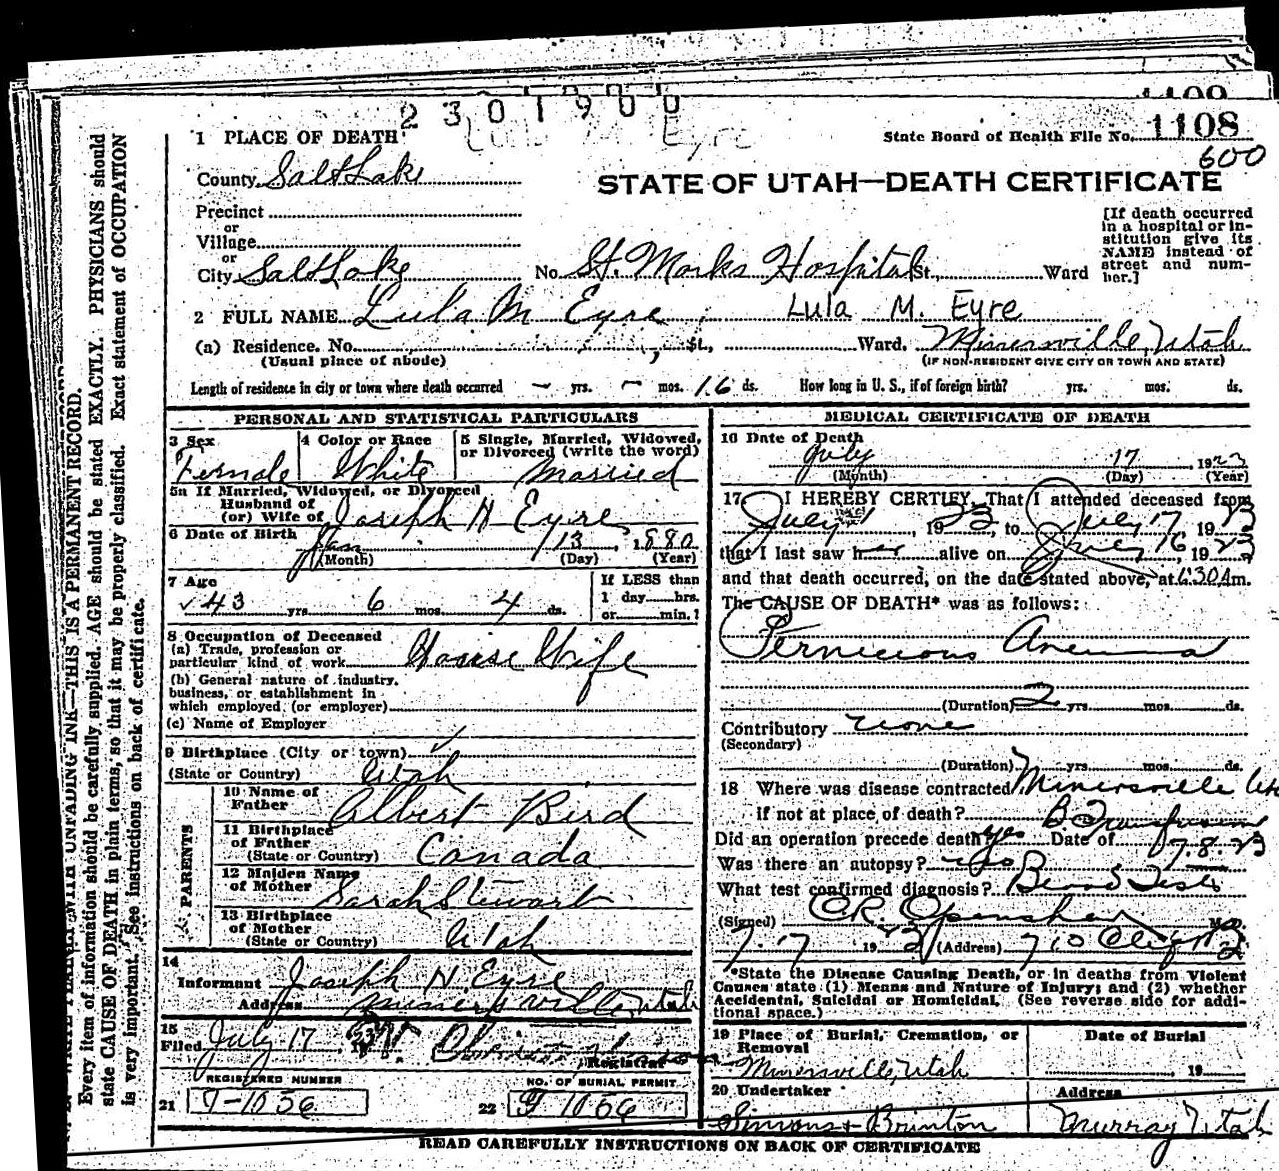 2301900
1109
1 PLACE OF DEATH Lula M Eyre State Board of Health File No. 1108
600
County Salt Lake
STATE OF UTAH—DEATH CERTIFICATE
Precinct
or
Village
or
City Salt Lake No. St. Marks Hospital St., Ward
[If death occurred
in a hospital or in-
stitution give its
NAME instead of
street and num-
ber.]
2 FULL NAME Lula M Eyre Lula M. Eyre
(a) Residence. No. St., Ward. Minersville, Utah
(Usual place of abode) (IF NON-RESIDENT GIVE CITY OR TOWN AND STATE)
Length of residence in city or town where death occurred — yrs. — mos. 16 ds. How long in U. S., if of foreign birth? yrs. mos. ds.
PERSONAL AND STATISTICAL PARTICULARS
3 Sex
Female
4 Color or Race
White
5 Single, Married, Widowed,
or Divorced (write the word)
Married
5a If Married, Widowed, or Divorced
Husband of
(or) Wife of Joseph H Eyre
6 Date of Birth Jan 13, 1880
(Month) (Day) (Year)
7 Age
43 yrs 6 mos 4 ds.
If LESS than
1 day hrs.
or min.?
8 Occupation of Deceased
(a) Trade, profession or
particular kind of work House Wife
(b) General nature of industry,
business, or establishment in
which employed (or employer)
(c) Name of Employer
9 Birthplace (City or town)
(State or Country) Utah
PARENTS
10 Name of
Father Albert Bird
11 Birthplace
of Father
(State or Country) Canada
12 Maiden Name
of Mother Sarah Stewart
13 Birthplace
of Mother
(State or Country) Utah
14
Informant Joseph H. Eyre
Address Minersville, Utah
15
Filed July 17, 1923
Registrar
REGISTERED NUMBER
21 J-1056
NO. OF BURIAL PERMIT
22 J 1056
MEDICAL CERTIFICATE OF DEATH
16 Date of Death
July 17, 1923
(Month) (Day) (Year)
17 I HEREBY CERTIFY, That I attended deceased from
July 1, 1923, to July 17, 1923
that I last saw her alive on July 16, 1923
and that death occurred, on the date stated above, at 6:30 A m.
The CAUSE OF DEATH* was as follows:
Pernicious Anemia
(Duration) 2 yrs. mos. ds.
Contributory none
(Secondary)
(Duration) yrs. mos. ds.
18 Where was disease contracted Minersville Ut
if not at place of death? B Transfusion
Did an operation precede death? yes Date of 7.8.23
Was there an autopsy?
What test confirmed diagnosis? Blood Tests
(Signed) C.R. Openshaw M.D.
7.17, 1923 (Address) 710 Clift
*State the Disease Causing Death, or in deaths from Violent
Causes state (1) Means and Nature of Injury; and (2) whether
Accidental, Suicidal or Homicidal. (See reverse side for addi-
tional space.)
19 Place of Burial, Cremation, or
Removal
Minersville, Utah
Date of Burial
19
20 Undertaker
Simons & Brinton
Address
Murray Utah
READ CAREFULLY INSTRUCTIONS ON BACK OF CERTIFICATE
UNFADING INK—THIS IS A PERMANENT RECORD.
Every item of information should be carefully supplied. AGE should be stated EXACTLY. PHYSICIANS should
state CAUSE OF DEATH in plain terms, so that it may be properly classified. Exact statement of OCCUPATION
is very important. See instructions on back of certificate.